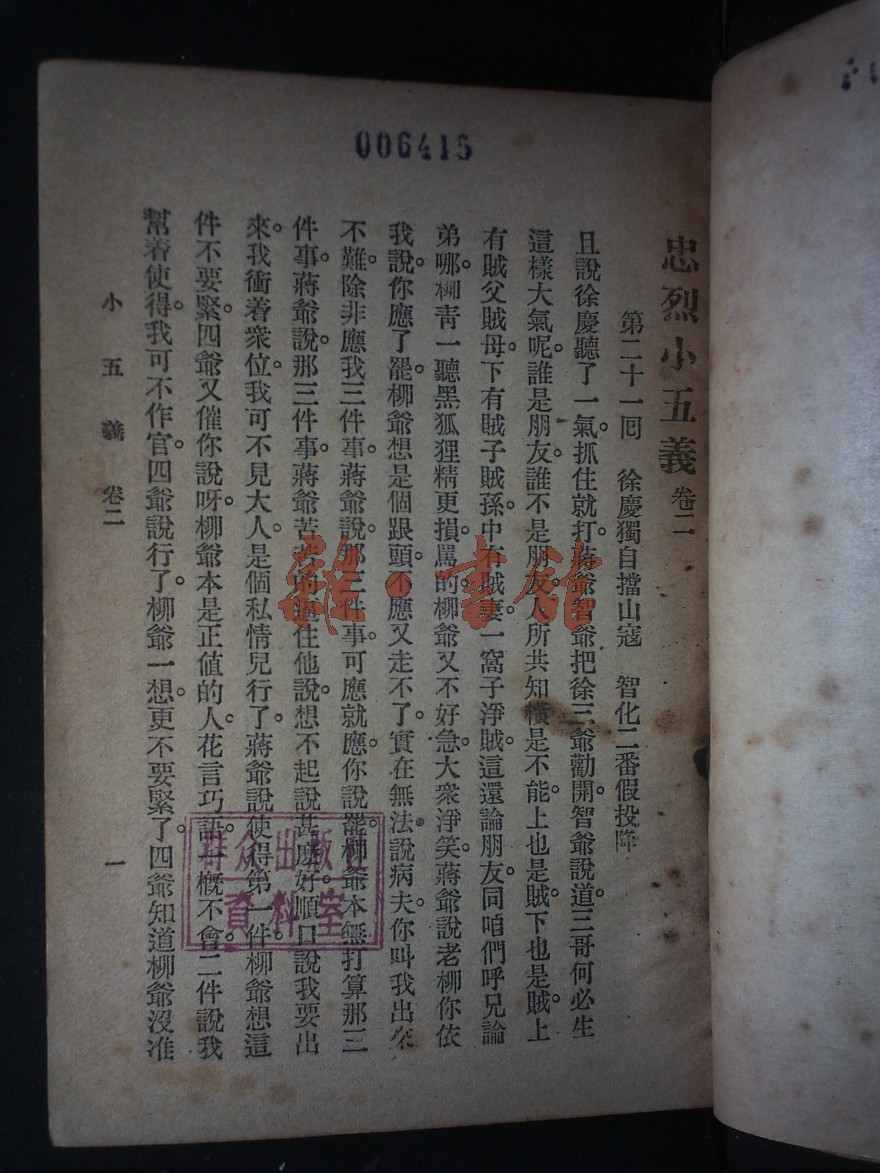 006415
忠烈小五義 卷二
第二十一囘 徐慶獨自擋山寇 智化二番假投降
且說徐慶聽了一氣。抓住就打。蔣爺智爺把徐三爺勸開。智爺說道。三哥何必生
這樣大氣呢。誰是朋友。誰不是朋友。人所共知。橫是不能。上也是賊。下也是賊。上
有賊父賊母。下有賊子賊孫。中有賊妻。一窩子淨賊。這還論朋友。同咱們呼兄論
弟哪。柳青一聽。黑狐狸精更損。罵的柳爺又不好急。大衆淨笑。蔣爺說。老柳你依
我說。你應了罷。柳爺想是個跟頭。不應又走不了。實在無法。說病夫。你叫我出來
不難。除非應我三件事。蔣爺說。那三件事。可應就應。你說罷。柳爺本無打算那三
件事。蔣爺說。那三件事。蔣爺苦苦的逼住他說。想不起說甚麽好。順口說。我要出
來。我衝着衆位。我可不見大人。是個私情兒行了。蔣爺說使得。第一件。柳爺想這
件不要緊。四爺又催你說呀。柳爺本是正值的人。花言巧語。一概不會。二件說我
幫着使得。我可不作官。四爺說行了。柳爺一想。更不要緊了。四爺知道柳爺沒准
小五義 卷二 一
群众出版社
資料室
雜·書館